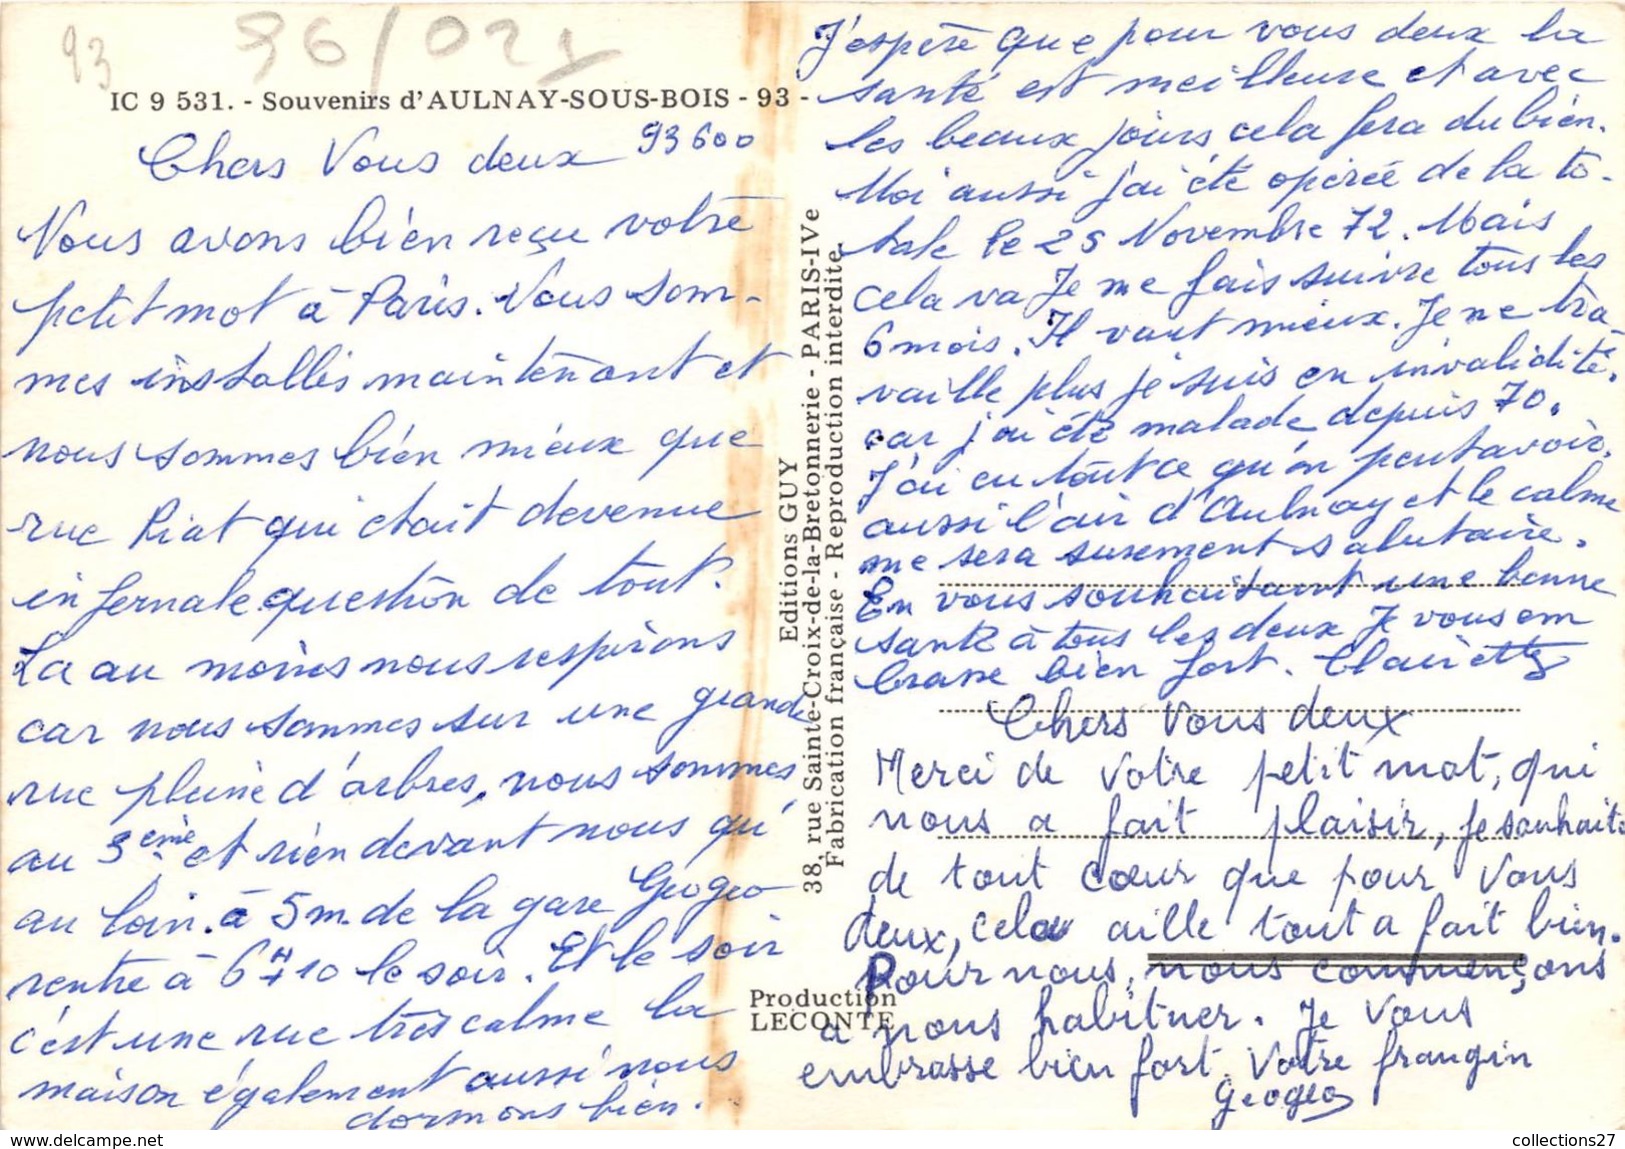 93
96/021
IC 9 531. - Souvenirs d'AULNAY-SOUS-BOIS - 93 -
93600
Chers Vous deux
Nous avons bien reçu votre
petit mot à Paris. Nous som-
mes installés maintenant et
nous sommes bien mieux que
rue Piat qui était devenue
infernale question de tout.
La au moins nous respirons
car nous sommes sur une grande
rue pleine d'arbres, nous sommes
au 3ème et rien devant nous qu'
au loin. à 5m. de la gare Geogeo
rentre à 6H10 le soir. Et le soir
c'est une rue très calme la
maison également aussi nous
dormons bien.
Editions GUY
38, rue Sainte-Croix-de-la-Bretonnerie - PARIS-IVe
Fabrication française - Reproduction interdite.
Production
LECONTE
J'espère que pour vous deux la
santé est meilleure et avec
les beaux jours cela fera du bien.
Moi aussi j'ai été opérée de la to-
tale le 25 Novembre 72. Mais
cela va Je me fais suivre tous les
6 mois. Il vaut mieux. Je ne tra-
vaille plus je suis en invalidité.
car j'ai été malade depuis 70.
J'ai eu tout ce qu'on peut avoir.
aussi l'air d'Aulnay et le calme
me sera surement salutaire.
En vous souhaitant une bonne
santé à tous les deux Je vous em
brasse bien fort. Clairette
Chers Vous deux
Merci de votre petit mot, qui
nous a fait plaisir, je souhaite
de tout cœur que pour vous
deux, cela aille tout a fait bien.
Pour nous, nous commençons
a nous habituer. Je vous
embrasse bien fort. Votre frangin
Geogeo
collections27
www.delcampe.net